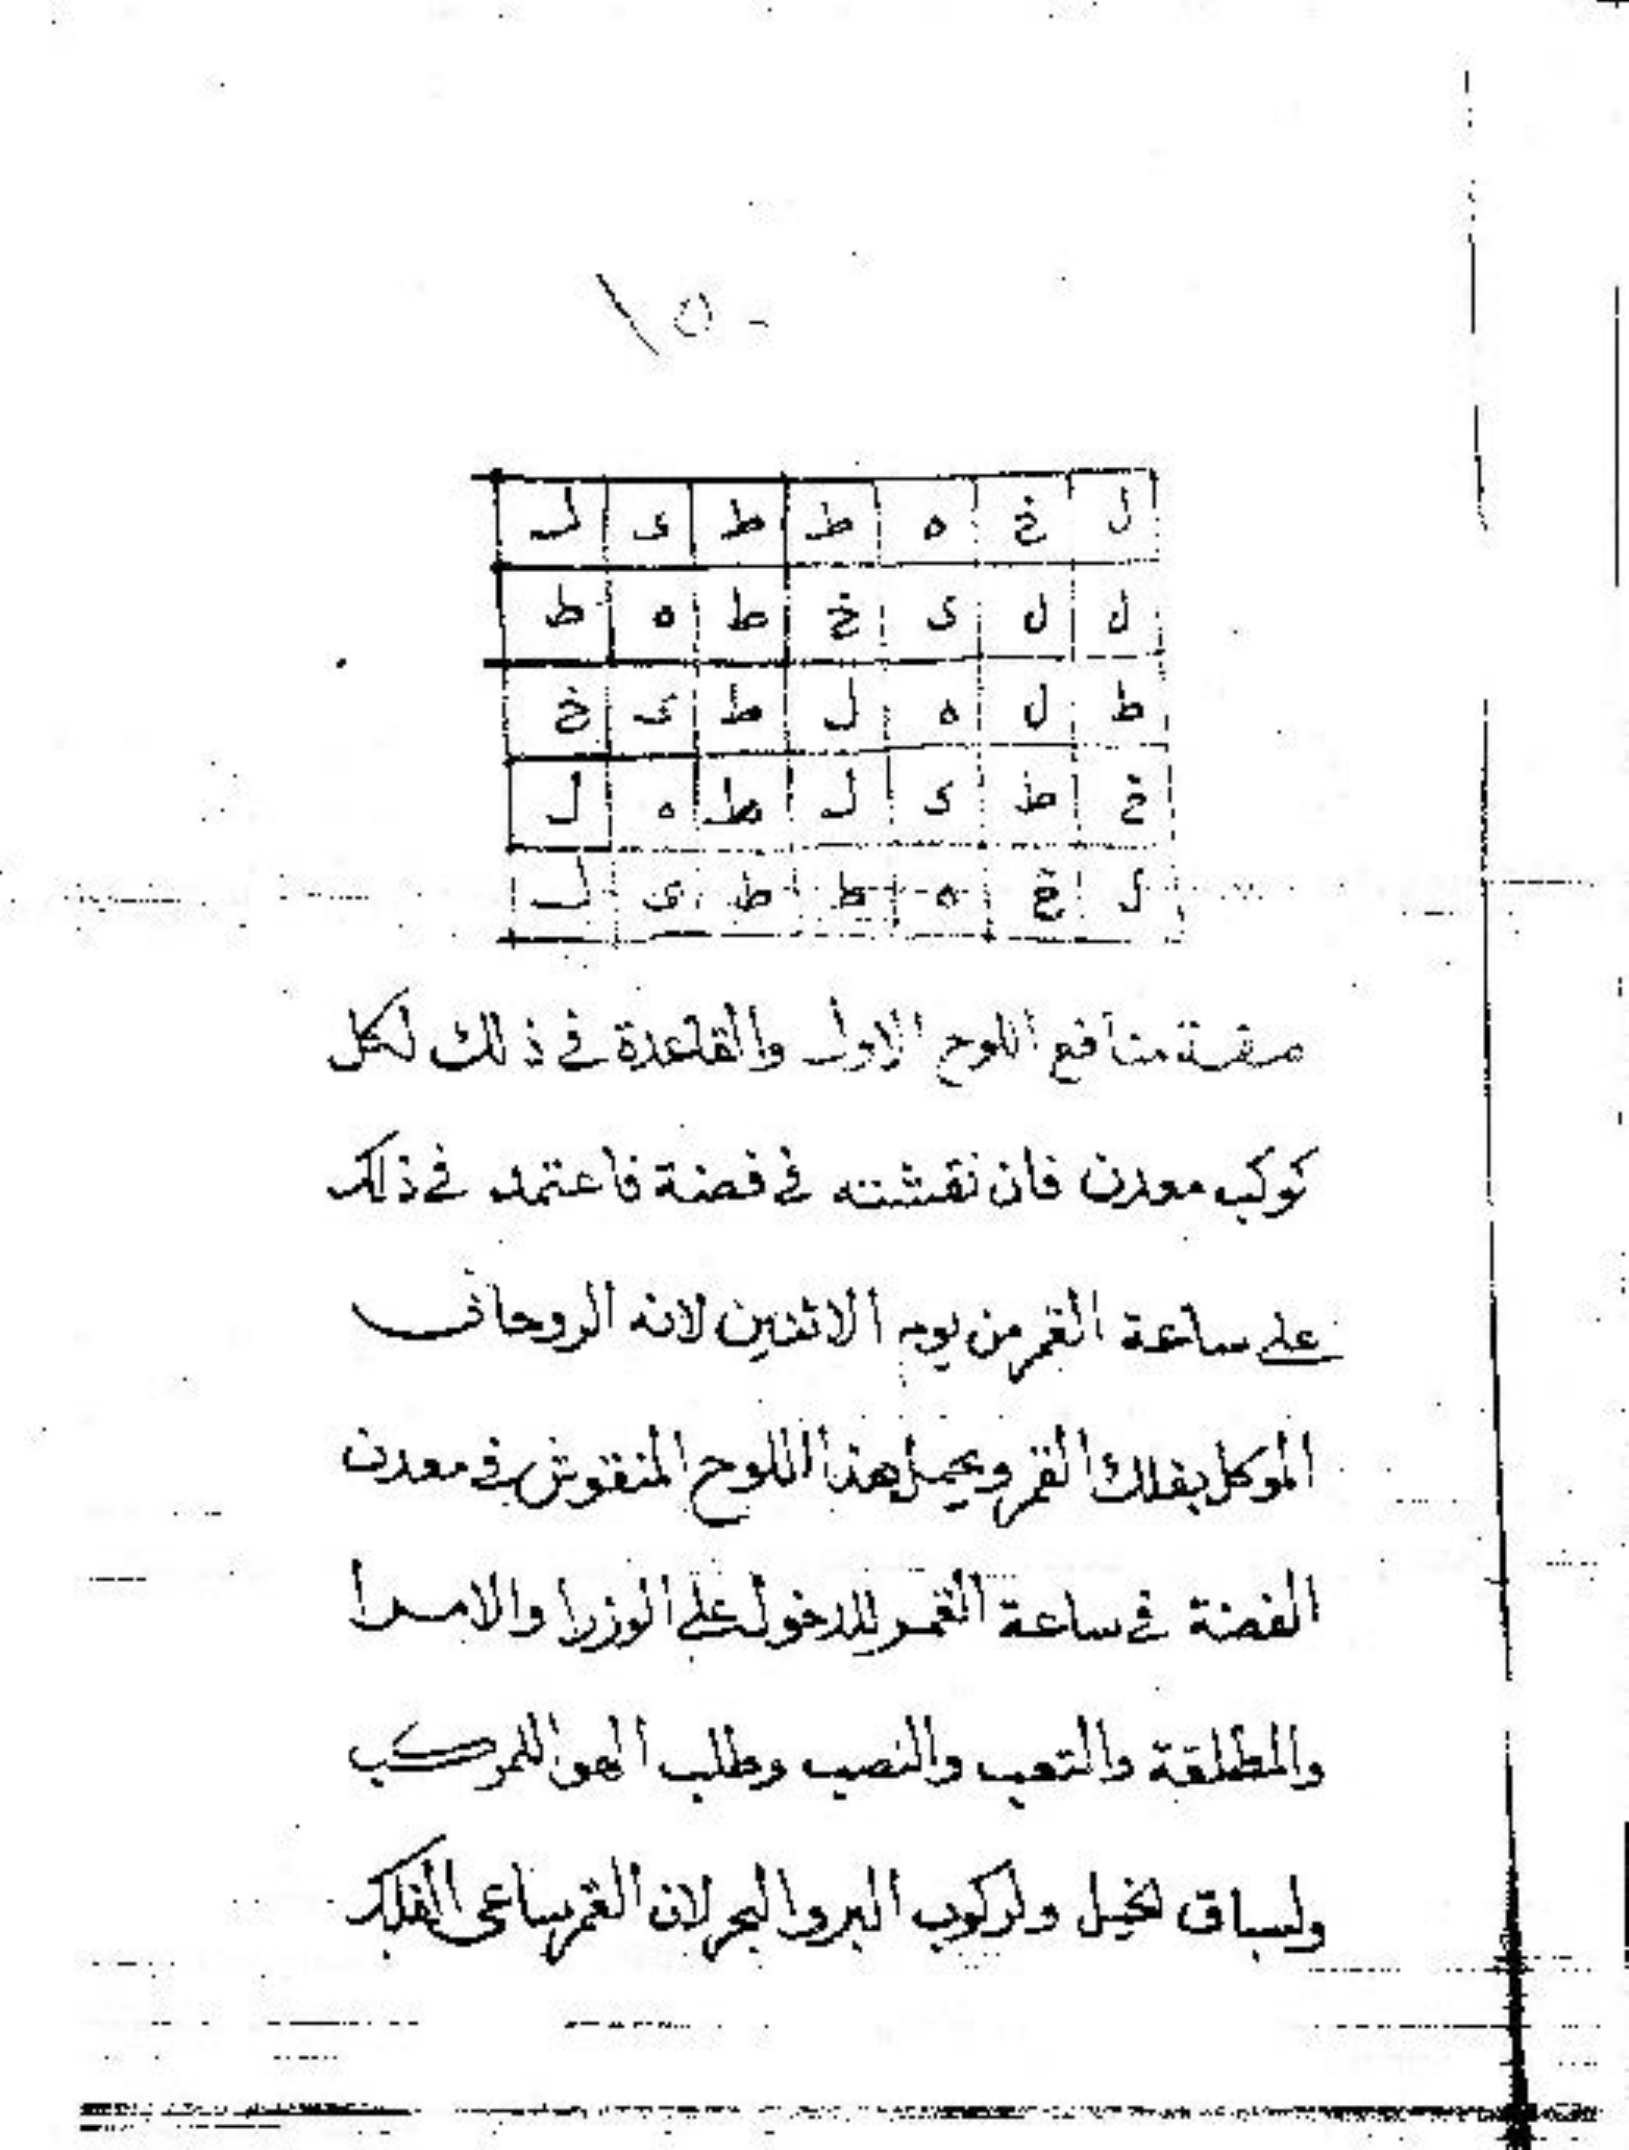 ل خ ه ط ط ى ل
ل ل ى خ ط ه ط
ط ل ه ل ط ى خ
خ ط ى ل ط ه ل
ل خ ه ط ط ى ل
صفة منافع اللوح الاول والقاعدة في ذلك لكل
كوكب معدن فان نقشته في فضة فاعتمد في ذلك
على ساعة القمر من يوم الاثنين لانه الروحانى
الموكل بفلك القمر ويحمل هذا اللوح المنقوش في معدن
الفضة في ساعة القمر للدخول على الوزرا والامرا
والمطلقة والتعب والنصب وطلب الهوا للمركب
ولسباق الخيل ولركوب البر والبحر لان القمر ساعى الفلك